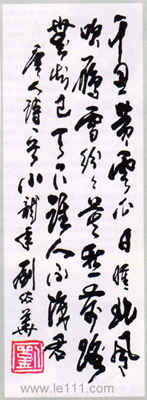 千里黄雲白日曛北風
吹雁雪紛々莫愁前路
無知己天下誰人不識君
唐人詩一首小龍年劉
劉
www.le111.com